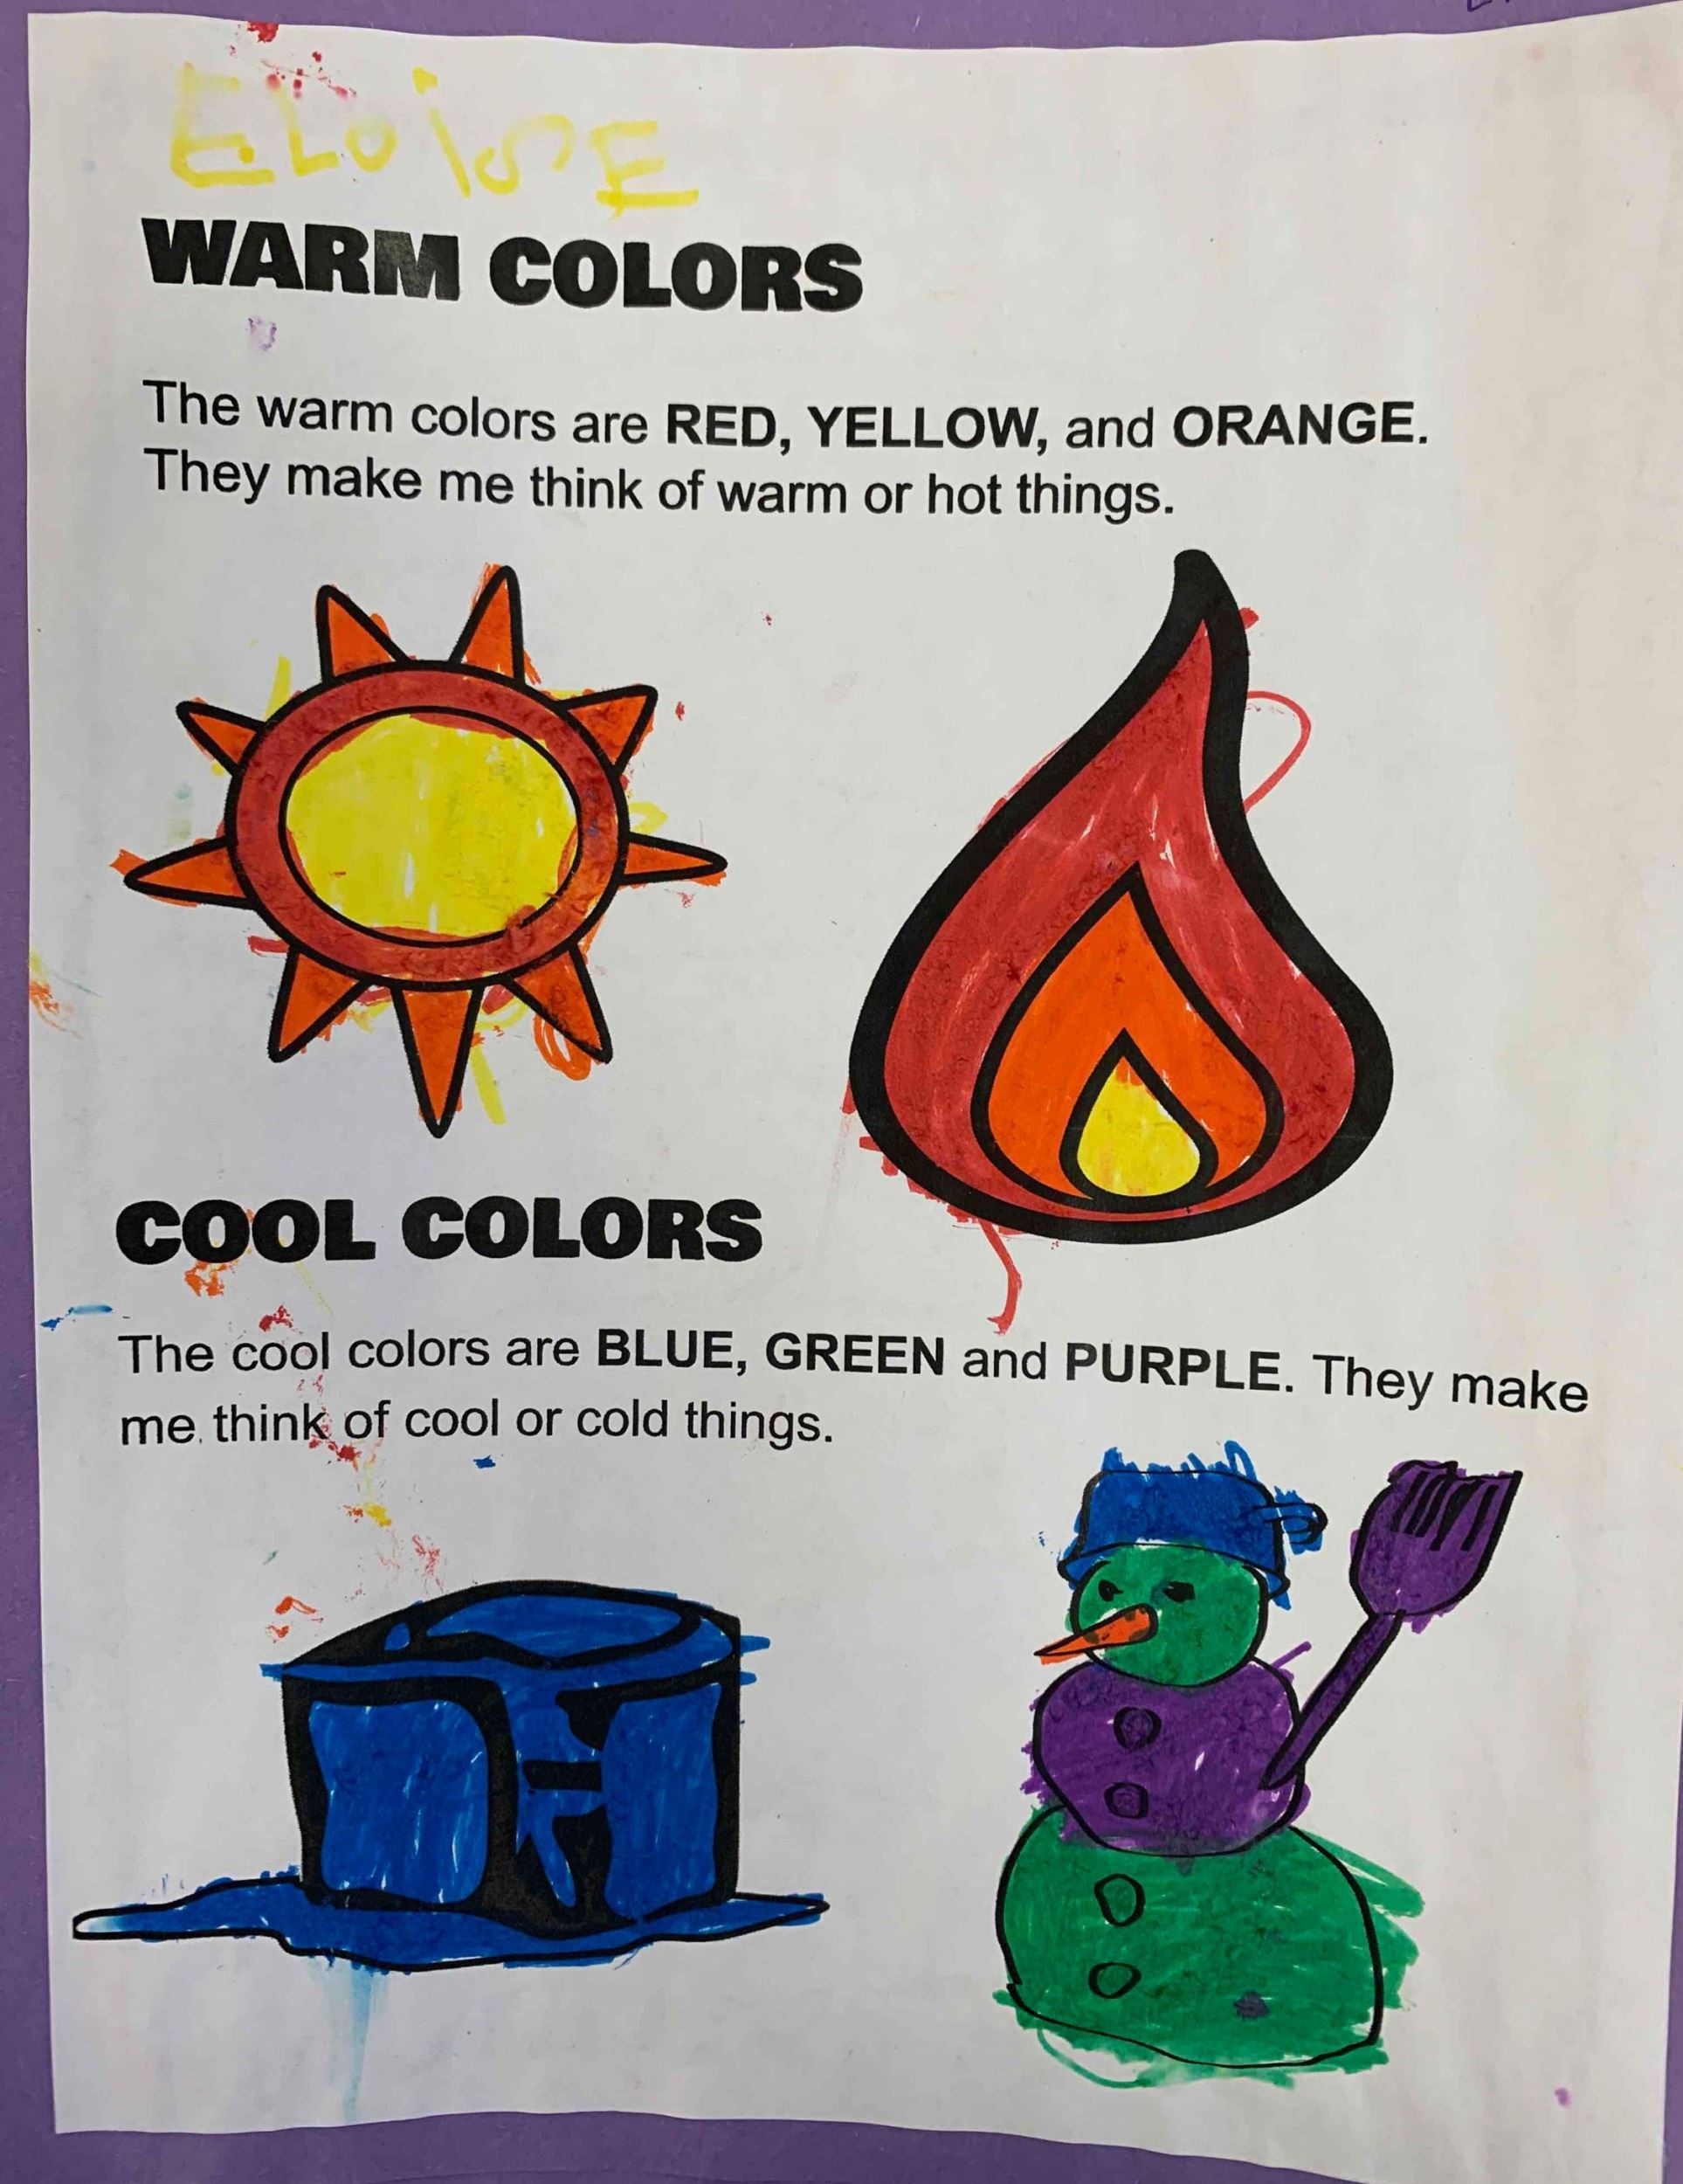 ELOiSE
WARM COLORS
The warm colors are RED, YELLOW, and ORANGE.
They make me think of warm or hot things.
COOL COLORS
The cool colors are BLUE, GREEN and PURPLE. They make
me think of cool or cold things.